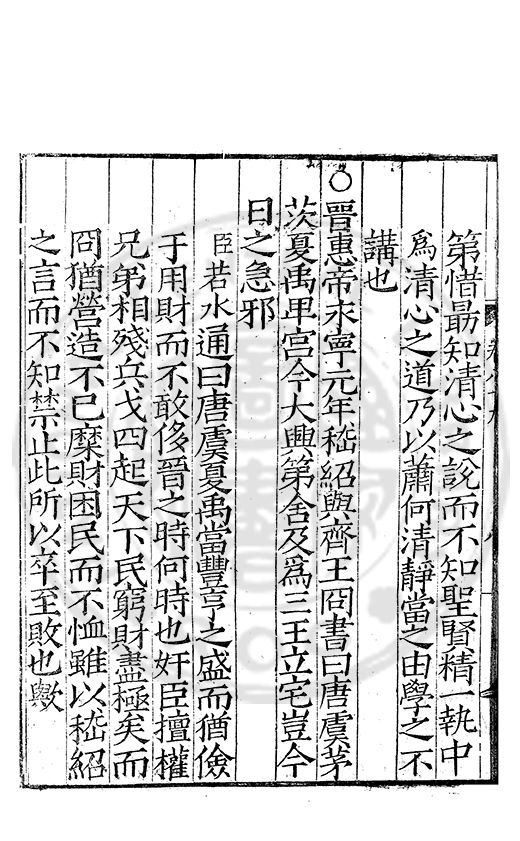 第惜勗知清心之說而不知聖賢精一執中
爲清心之道乃以蕭何清靜當之由學之不
講也
○晋惠帝永寧元年嵇紹與齊王冏書曰唐虞茅
茨夏禹卑宮今大興第舍及爲三王立宅豈今
日之急邪
臣若水通曰唐虞夏禹當豐亨之盛而猶儉
于用財而不敢侈晉之時何時也奸臣擅權
兄弟相殘兵戈四起天下民窮財盡極矣而
冏猶營造不已糜財困民而不恤雖以嵇紹
之言而不知禁止此所以卒至敗也歟